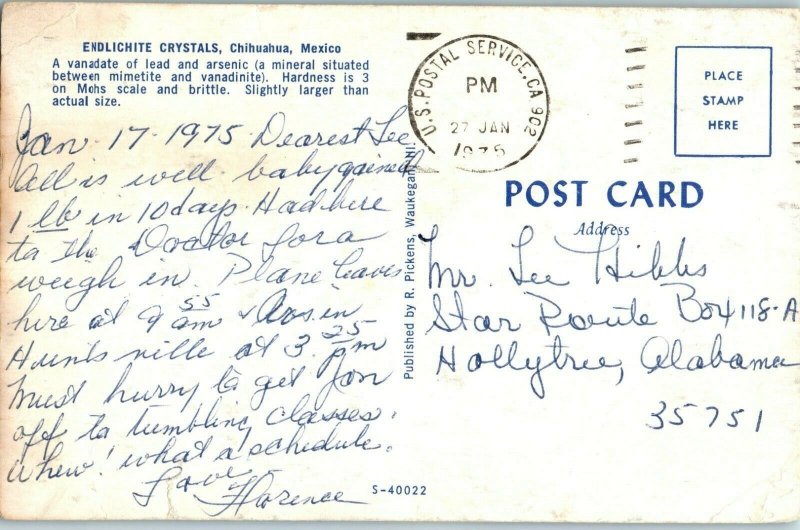 ENDLICHITE CRYSTALS, Chihuahua, Mexico
A vanadate of lead and arsenic (a mineral situated
between mimetite and vanadinite). Hardness is 3
on Mohs scale and brittle. Slightly larger than
actual size.
Jan. 17-1975 Dearest Lee
All is well. baby gained
1 lb in 10 days. Had here
to the Doctor for a
weigh in. Plane leaves
here at 9 55 am & Arrs. in
Huntsville at 3. 25 pm
Must hurry to get Jon
off to tumbling classes.
whew! what a schedule.
Love
Florence
Published by R. Pickens, Waukegan, Ill.
S-40022
U.S. POSTAL SERVICE, CA 902
PM
27 JAN
1975
PLACE
STAMP
HERE
POST CARD
Address
Mr. Lee Hibbs
Star Route Box 118-A
Hollytree, Alabama
35751